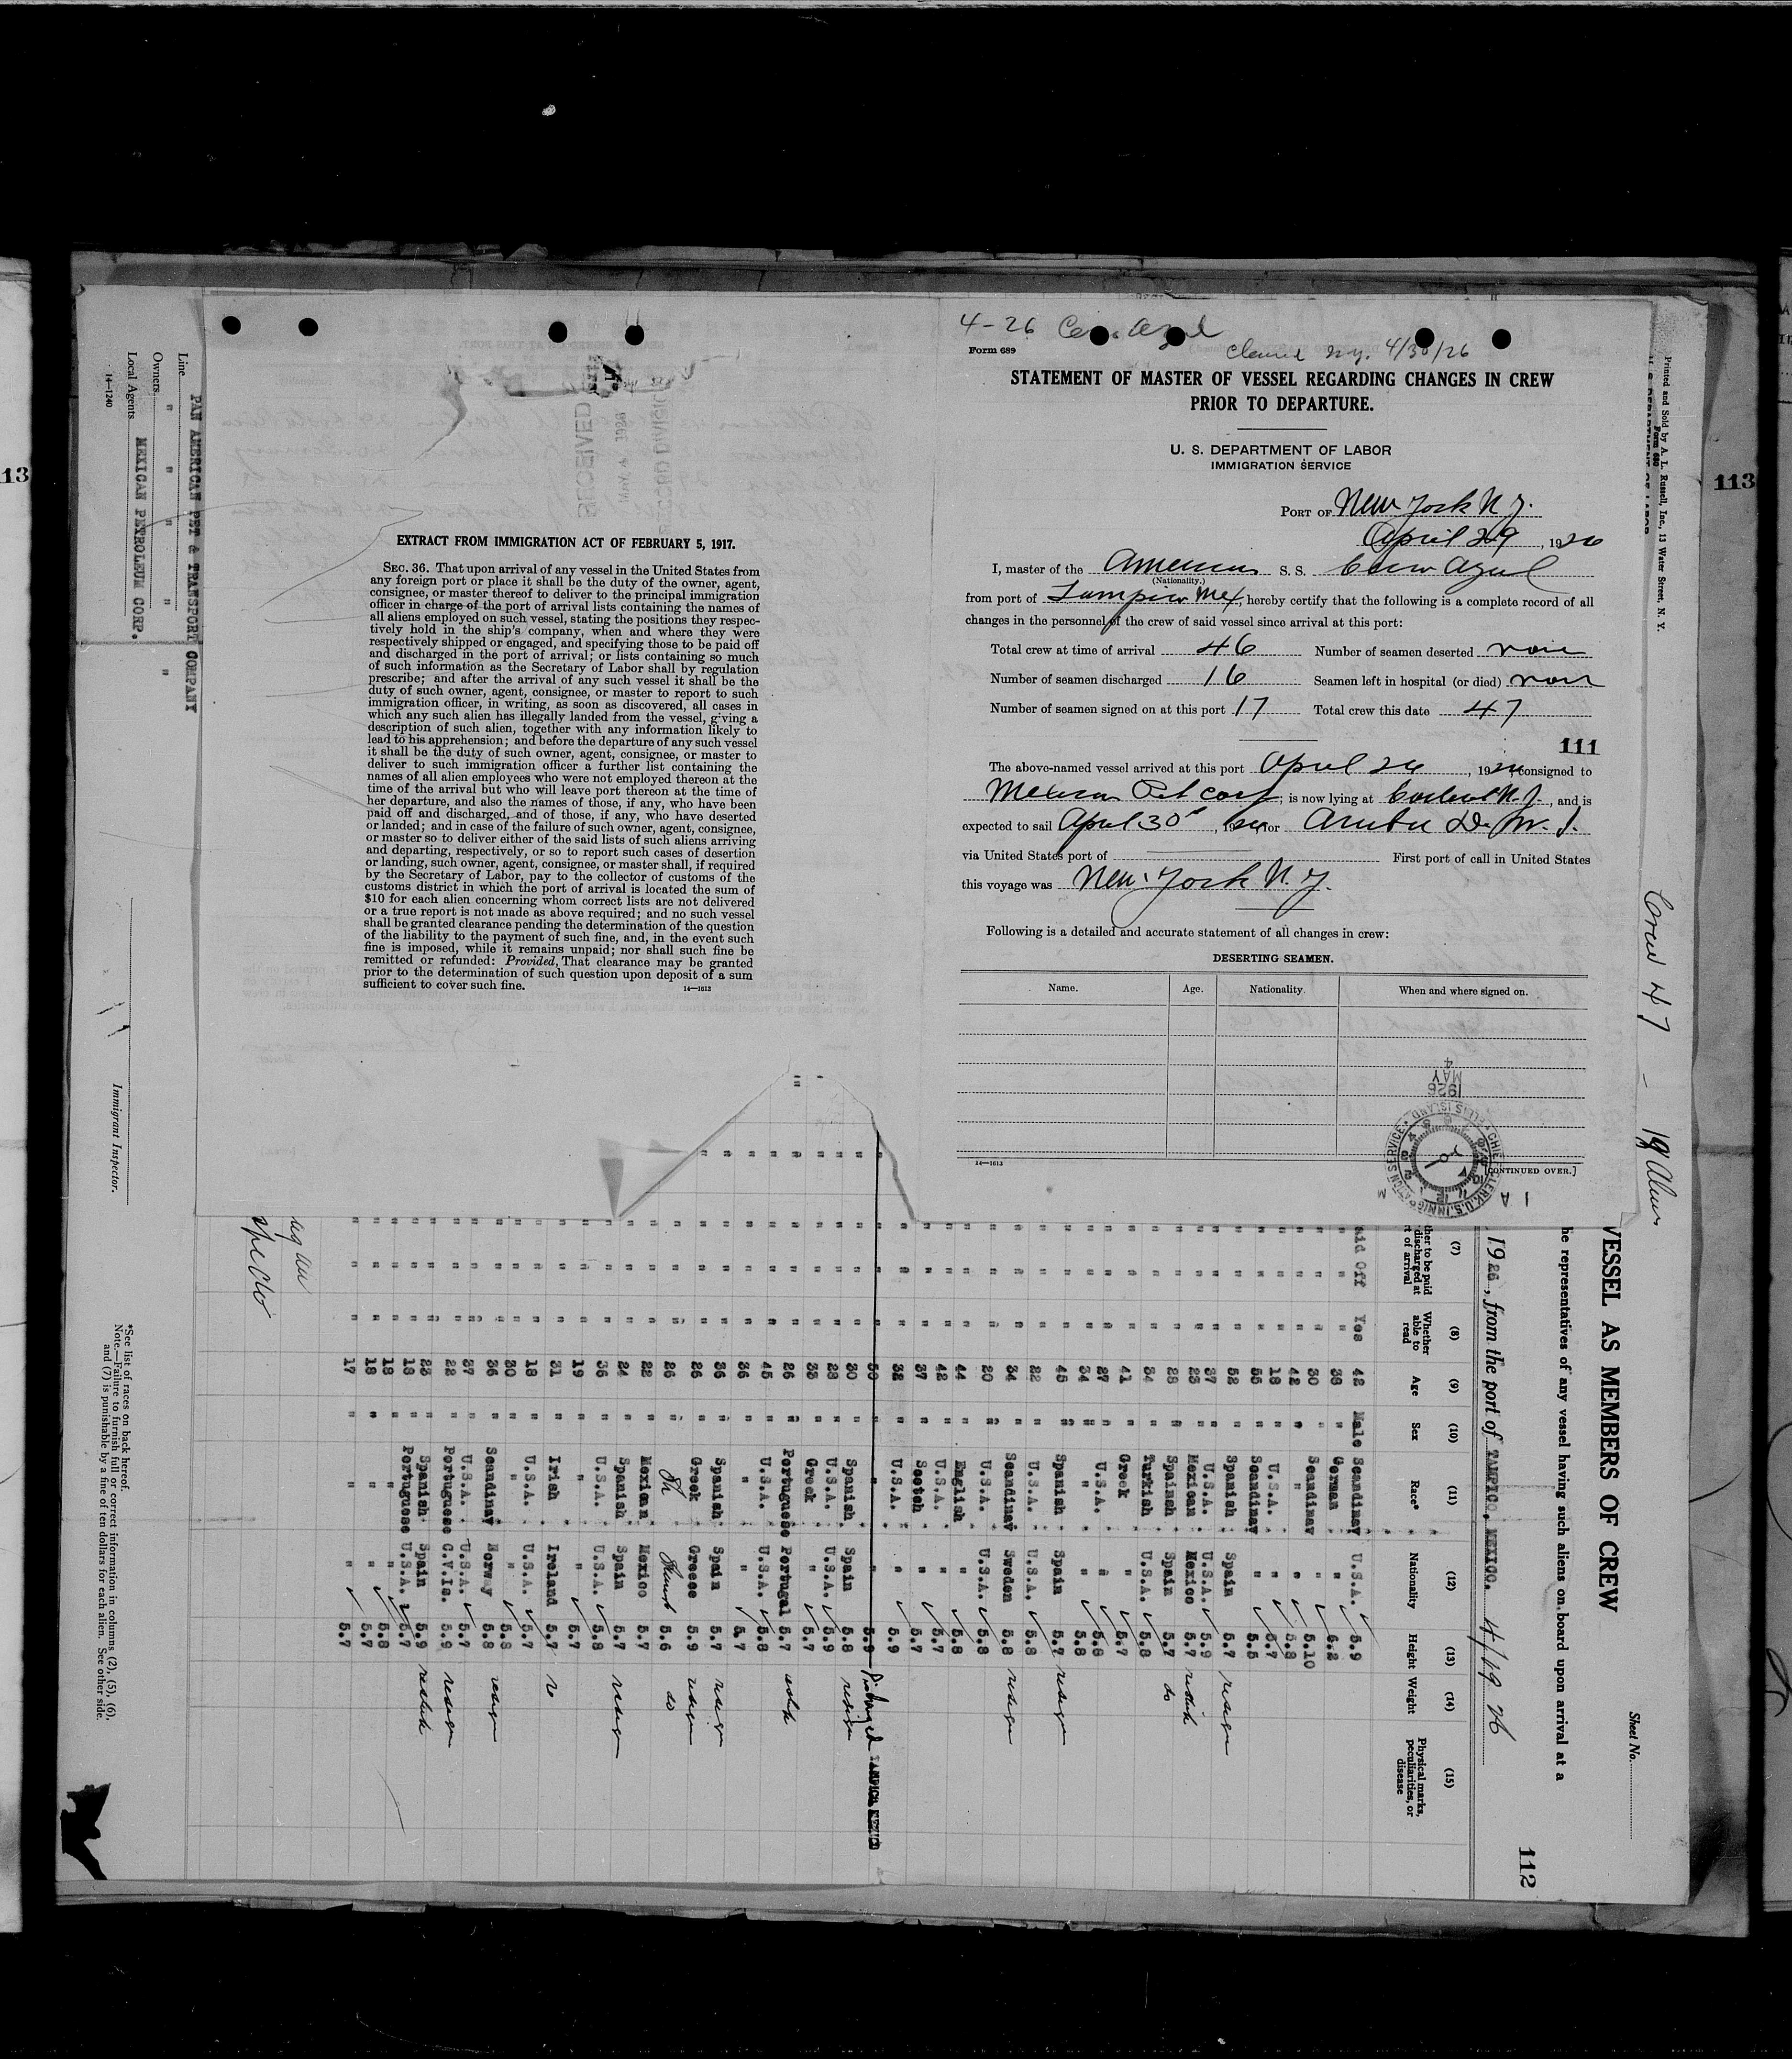 4-26 Cerro Azul
Cleared N.Y. 4/30/26
Form 689
STATEMENT OF MASTER OF VESSEL REGARDING CHANGES IN CREW
PRIOR TO DEPARTURE.
U. S. DEPARTMENT OF LABOR
IMMIGRATION SERVICE
PORT OF New York N.Y.
April 29, 1926
I, master of the American S. S. Cerro Azul
(Nationality.)
from port of Tampico Mex, hereby certify that the following is a complete record of all
changes in the personnel of the crew of said vessel since arrival at this port:
Total crew at time of arrival 46 Number of seamen deserted none
Number of seamen discharged 16 Seamen left in hospital (or died) none
Number of seamen signed on at this port 17 Total crew this date 47
111
The above-named vessel arrived at this port April 26, 1926, consigned to
Mexican Pet Corp; is now lying at Carteret N.J., and is
expected to sail April 30th, 1926 for Aruba D.W.I.
via United States port of First port of call in United States
this voyage was New York N.Y.
Following is a detailed and accurate statement of all changes in crew:
DESERTING SEAMEN.
Name. Age. Nationality. When and where signed on.
1926
MAY
4
14—1613
[CONTINUED OVER.]
EXTRACT FROM IMMIGRATION ACT OF FEBRUARY 5, 1917.
SEC. 36. That upon arrival of any vessel in the United States from
any foreign port or place it shall be the duty of the owner, agent,
consignee, or master thereof to deliver to the principal immigration
officer in charge of the port of arrival lists containing the names of
all aliens employed on such vessel, stating the positions they respec-
tively hold in the ship's company, when and where they were
respectively shipped or engaged, and specifying those to be paid off
and discharged in the port of arrival; or lists containing so much
of such information as the Secretary of Labor shall by regulation
prescribe; and after the arrival of any such vessel it shall be the
duty of such owner, agent, consignee, or master to report to such
immigration officer, in writing, as soon as discovered, all cases in
which any such alien has illegally landed from the vessel, giving a
description of such alien, together with any information likely to
lead to his apprehension; and before the departure of any such vessel
it shall be the duty of such owner, agent, consignee, or master to
deliver to such immigration officer a further list containing the
names of all alien employees who were not employed thereon at the
time of the arrival but who will leave port thereon at the time of
her departure, and also the names of those, if any, who have been
paid off and discharged, and of those, if any, who have deserted
or landed; and in case of the failure of such owner, agent, consignee,
or master so to deliver either of the said lists of such aliens arriving
and departing, respectively, or so to report such cases of desertion
or landing, such owner, agent, consignee, or master shall, if required
by the Secretary of Labor, pay to the collector of customs of the
customs district in which the port of arrival is located the sum of
$10 for each alien concerning whom correct lists are not delivered
or a true report is not made as above required; and no such vessel
shall be granted clearance pending the determination of the question
of the liability to the payment of such fine, and, in the event such
fine is imposed, while it remains unpaid; nor shall such fine be
remitted or refunded: Provided, That clearance may be granted
prior to the determination of such question upon deposit of a sum
sufficient to cover such fine.
14—1613
Printed and Sold by A. L. Russell, Inc., 13 Water Street, N. Y.
Form 680
Crew 47 - 19 Aliens
Sheet No.
VESSEL AS MEMBERS OF CREW
he representatives of any vessel having such aliens on board upon arrival at a
1926, from the port of TAMPICO, MEXICO. 4/19 26
112
(7) (8) (9) (10) (11) (12) (13) (14) (15)
Whether able to read Age Sex Race* Nationality Height Weight Physical marks, peculiarities, or disease
aid Off Yes 42 Male Scandinav U.S.A. 5.9
" " 38 " German " 6.2
" " 30 " Scandinav " 5.10
" " 42 " " " 5.8
" " 18 " U.S.A. " 5.7
" " 55 " Scandinav " 5.5
" " 52 " Spanish Spain 5.7
" " 37 " U.S.A. U.S.A. 5.9
" " 23 " Mexican Mexico 5.7
" " 28 " Spainsh Spain 5.7 do
" " 34 " Turkish U.S.A. 5.8
" " 41 " Greek " 5.7
" " 27 " U.S.A. " 5.8
" " 34 " " " 5.8
" " 45 " Spanish Spain 5.7
" " 22 " U.S.A. U.S.A. 5.8
" " 34 " Scandinav Sweden 5.8
" " 20 " U.S.A. U.S.A. 5.8
" " 44 " English " 5.8
" " 42 " U.S.A. " 5.7
" " 37 " Scotch " 5.7
" " 32 " U.S.A. " 5.9
" " 50 " " " 5.9 Discharged TAMPICO, MEXICO
" " 30 " Spanish Spain 5.8
" " 28 " U.S.A. U.S.A. 5.9
" " 33 " Greek " 5.7
" " 26 " Portuguese Portugal 5.7
" " 45 " U.S.A. U.S.A. 5.8
" " 36 " " " 5.7
" " 36 " Spanish Spain 5.7
" " 26 " Greek Greece 5.9
" " 26 " 5.6 do
" " 22 " Mexican Mexico 5.7
" " 24 " Spanish Spain 5.7
" " 36 " U.S.A. U.S.A. 5.8
" " 19 " " " 5.7
" " 31 " Irish Ireland 5.7
" " 18 " U.S.A. U.S.A. 5.7
" " 30 " " " 5.8
" " 36 " Scandinav Norway 5.8
" " 37 " U.S.A. U.S.A. 5.7
" " 22 " Portuguese C.V.Is. 5.9
" " 23 " Spanish Spain 5.9
" " 18 " Portuguese U.S.A. 5.7
" " 18 " " " 5.8
" " 18 " " " 5.7
" " 17 " " " 5.7
PAN AMERICAN PET & TRANSPORT COMPANY
Line
Owners " " " " "
Local Agents MEXICAN PETROLEUM CORP.
14—1240
Immigrant Inspector.
*See list of races on back hereof.
Note.—Failure to furnish full or correct information in columns (2), (5), (6),
and (7) is punishable by a fine of ten dollars for each alien. See other side.
113
13